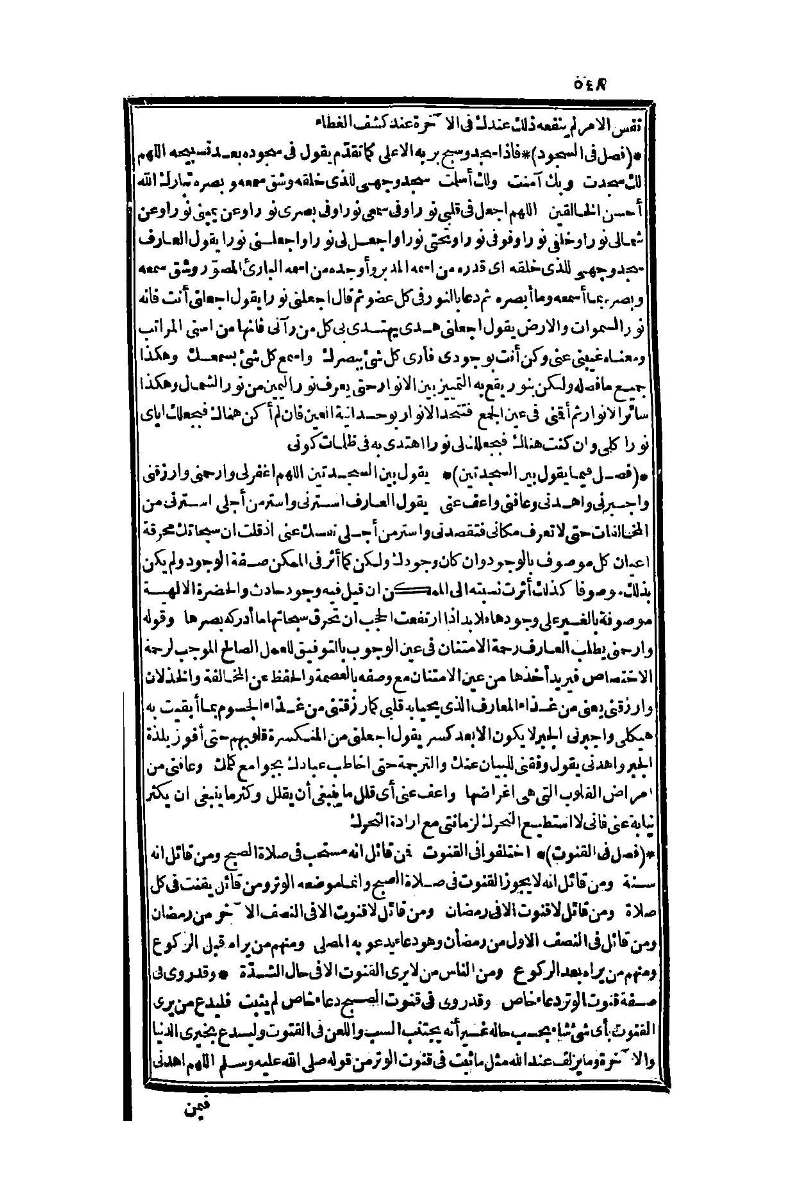 ٥٤٨
نفس الامر لم ينفعه ذلك عندك فى الآخرة عند كشف الغطاء
*(فصل فى السجود)* فاذا سجد وسبح بربه الاعلى كما تقدّم يقول فى سجوده بعد تسبيحه اللهم
لك سجدت وبك آمنت ولك أسلمت سجد وجهى للذى خلقه وشق سمعه وبصره تبارك الله
أحسن الخالقين اللهم اجعل فى قلبى نورا وفى سمعى نورا وفى بصرى نورا وعن يمينى نورا وعن
شمالى نورا وخلفى نورا وفوقى نورا وتحتى نورا واجعل لى نورا واجعلنى نورا يقول العارف
سجد وجهى للذى خلقه اى قدره من اسمه المدبر وأوجده من اسمه البارئ المصوّر وشق سمعه
وبصره بما أسمعه وما أبصره ثم دعا بالنور فى كل عضو ثم قال اجعلنى نورا يقول اجعلنى أنت فانه
نور السموات والارض يقول اجعلنى هدى يهتدى بى كل من رآنى فانها من اسنى المراتب
ومعناه غيبنى عنى وكن أنت بوجودى فأرى كل شئ ببصرك واسمع كل شئ بسمعك وهكذا
جميع ما فصله ولكن بنور يقع به التمييز بين الانوار حتى يعرف نور اليمين من نور الشمال وهكذا
سائر الانوار ثم أقنى فى عين الجمع فتتحد الانوار بوحدانية العين فان لم أكن هناك فبجعلك اياى
نورا كلى وان كنت هناك فبجعلك لى نورا اهتدى به فى ظلمات كونى
*(فصل فيما يقول بين السجدتين)* يقول بين السجدتين اللهم اغفر لى وارحمنى وارزقنى
واجبرنى واهدنى وعافنى واعف عنى يقول العارف استرنى واستر من أجلى استرنى من
المخالفات حتى لا تعرف مكانى فتقصدنى واستر من أجلى نفسك عنى اذ قلت ان سبحاتك محرقة
اعيان كل موصوف بالوجود وان كان وجودك ولكن كما أثر فى الممكن صفة الوجود ولم يكن
بذلك موصوفا كذلك أثرت نسبته الى الممكن ان قيل فيه وجود حادث والحضرة الالهية
موصوفة بالغير على وجودها فلا بد اذا ارتفعت الحجب ان تحرق سبحاتها ما أدركه بصرها وقوله
وارحمنى يطلب العارف رحمة الامتنان فى عين الوجوب بالتوفيق للعمل الصالح الموجب لرحمة
الاختصاص فيريد أخذها من عين الامتنان مع وصفه بالعصمة والحفظ عن المخالفة والخذلان
وارزقنى يعنى من غذاء المعارف الذى يحيا به قلبى كما رزقتنى من غذاء الجسوم بما أبقيت به
هيكلى واجبرنى الجبر لا يكون الا بعد كسر يقول اجعلنى من المنكسرة قلوبهم حتى أفوز بلذة
الجبر واهدنى يقول وفقنى للبيان عنك والترجمة حتى اخاطب عبادك بجوامع كلمك وعافنى من
امراض القلوب التى هى اغراضها واعف عنى أى قلل ما ينبغى أن يقلل وكثر ما ينبغى ان يكثر
نيابة عنى فانى لا استطيع التحرك لزمانتى مع ارادة التحرك
*(فصل فى القنوت)* اختلفوا فى القنوت فمن قائل انه مستحب فى صلاة الصبح ومن قائل انه
سنة ومن قائل انه لا يجوز القنوت فى صلاة الصبح وانما موضعه الوتر ومن قائل يقنت فى كل
صلاة ومن قائل لا قنوت الا فى رمضان ومن قائل لا قنوت الا فى النصف الآخر من رمضان
ومن قائل فى النصف الاول من رمضان وهو دعاء يدعو به المصلى ومنهم من يراه قبل الركوع
ومنهم من يراه بعد الركوع ومن الناس من لا يرى القنوت الا فى حال الشدّة * وقد روى فى
صفة قنوت الوتر دعاء خاص وقد روى فى قنوت الصبح دعاء خاص لم يثبت فليدع من يرى
القنوت بأى شئ شاء بحسب حاله غير أنه يجتنب السب واللعن فى القنوت وليدع بخيرى الدنيا
والآخرة وما يزلف عند الله مثل ما ثبت فى قنوت الوتر من قوله صلى الله عليه وسلم اللهم اهدنى
فيمن